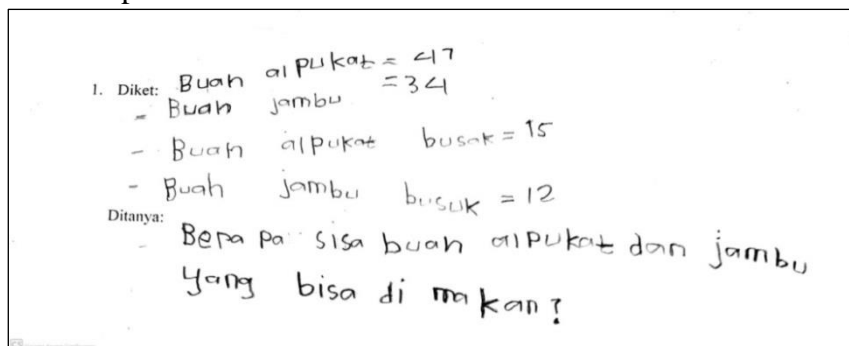 1. Diket: Buah alpukat = 47
- Buah jambu = 34
- Buah alpukat busuk = 15
- Buah jambu busuk = 12
Ditanya:
Berapa sisa buah alpukat dan jambu
yang bisa di makan?